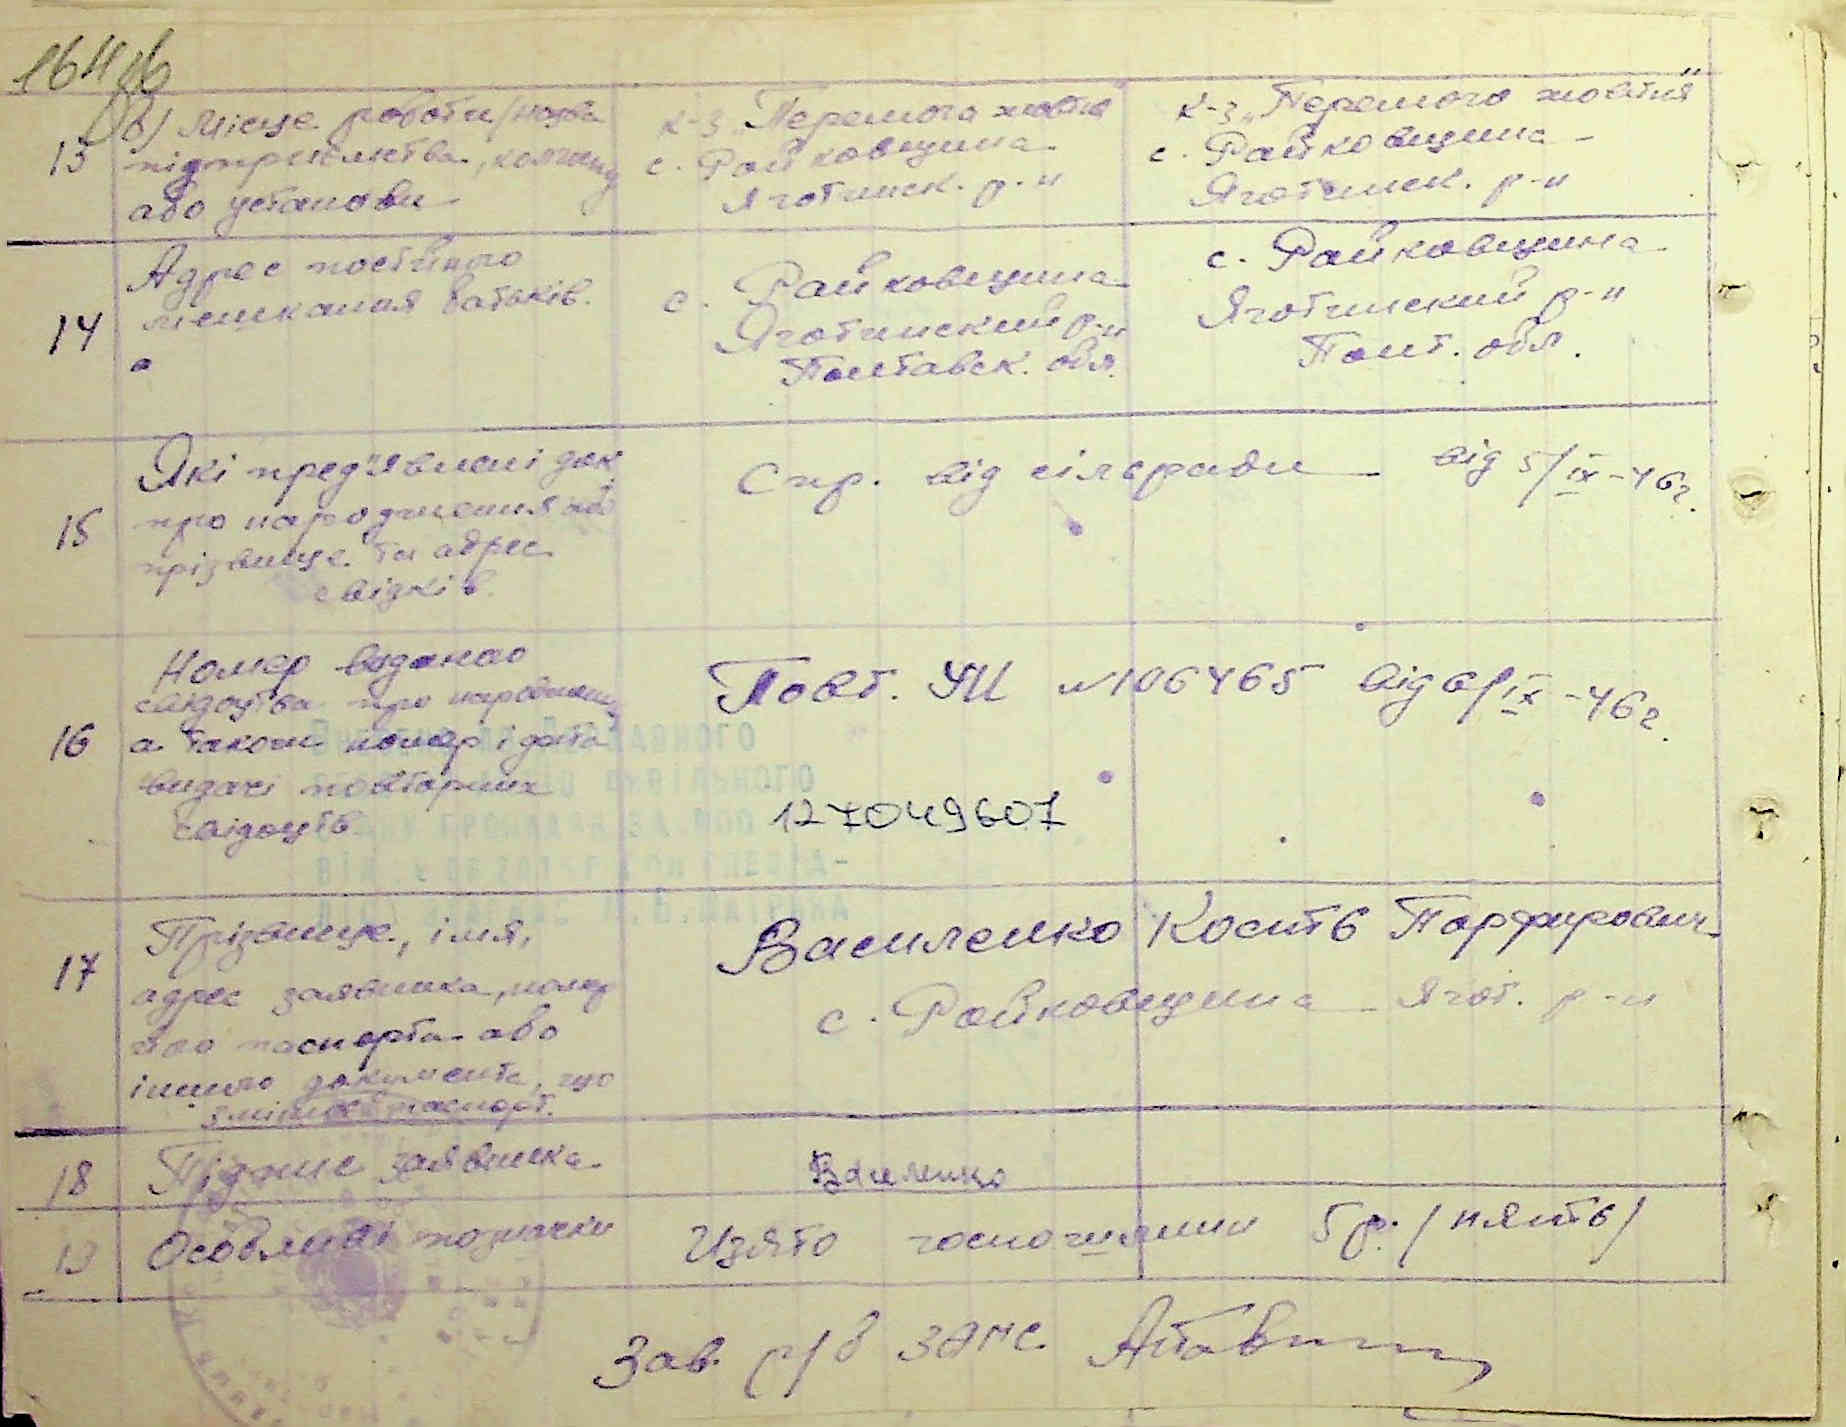 13 в) Місце роботи/назва
підприємства, колгоспу
або установи
к-з „Перемога жовтня
с. Райковщина
Яготинск. р-н
к-з „Перемога жовтня"
с. Райковщина
Яготинск. р-н
14 Адрес постійного
мешкання батьків.
с. Райковщина
Яготинский р-н
Полтавск. обл.
с. Райковщина
Яготинский р-н
Полт. обл.
15 Які пред'явлені док.
про народження або
прізвище та адрес
свідків.
Спр. від сільради від 5/IX-46г.
16 Номер виданого
свідоцтва про народження
а також номер і дата
видачі повторних
свідоцтв
Повт. УЩ №106465 від 6/IX-46г.
127049607
17 Прізвище, імя,
адрес заявника, номер
його паспорта або
іншого документа, що
замінює паспорт.
Василенко Кость Парфирович
с. Райковщина Ягот. р-н
18 Підпис заявника
Василенко
19 Особливі позначки
Узято госпошлини 5р. /пять/
Зав. р/б ЗАГС